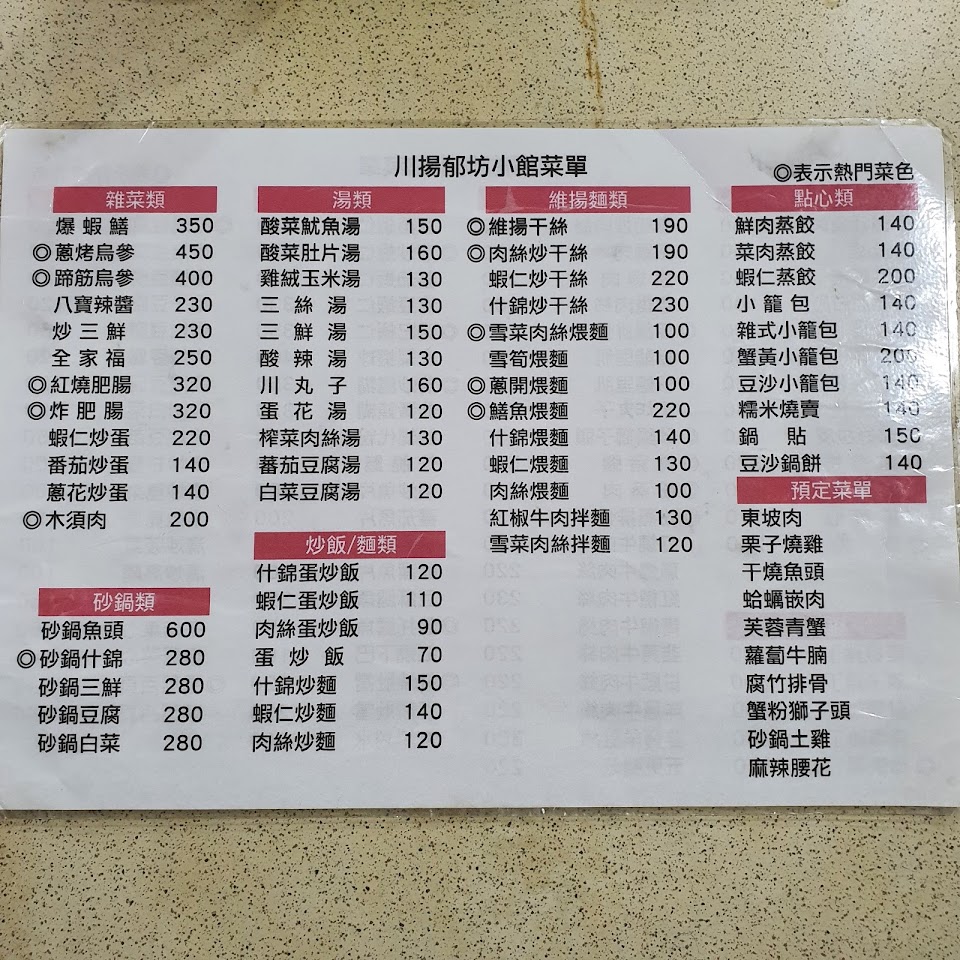 川揚郁坊小館菜單
◎表示熱門菜色
雜菜類
爆蝦鱔 350
◎蔥烤烏參 450
◎蹄筋烏參 400
八寶辣醬 230
炒三鮮 230
全家福 250
◎紅燒肥腸 320
◎炸肥腸 320
蝦仁炒蛋 220
番茄炒蛋 140
蔥花炒蛋 140
◎木須肉 200
砂鍋類
砂鍋魚頭 600
◎砂鍋什錦 280
砂鍋三鮮 280
砂鍋豆腐 280
砂鍋白菜 280
湯類
酸菜魷魚湯 150
酸菜肚片湯 160
雞絨玉米湯 130
三絲湯 130
三鮮湯 150
酸辣湯 130
川丸子 160
蛋花湯 120
榨菜肉絲湯 130
蕃茄豆腐湯 120
白菜豆腐湯 120
炒飯/麵類
什錦蛋炒飯 120
蝦仁蛋炒飯 110
肉絲蛋炒飯 90
蛋炒飯 70
什錦炒麵 150
蝦仁炒麵 140
肉絲炒麵 120
維揚麵類
◎維揚干絲 190
◎肉絲炒干絲 190
蝦仁炒干絲 220
什錦炒干絲 230
◎雪菜肉絲煨麵 100
雪筍煨麵 100
◎蔥開煨麵 100
◎鱔魚煨麵 220
什錦煨麵 140
蝦仁煨麵 130
肉絲煨麵 100
紅椒牛肉拌麵 130
雪菜肉絲拌麵 120
點心類
鮮肉蒸餃 140
菜肉蒸餃 140
蝦仁蒸餃 200
小籠包 140
雜式小籠包 140
蟹黃小籠包 200
豆沙小籠包 140
糯米燒賣 140
鍋貼 150
豆沙鍋餅 140
預定菜單
東坡肉
栗子燒雞
干燒魚頭
蛤蠣嵌肉
芙蓉青蟹
蘿蔔牛腩
腐竹排骨
蟹粉獅子頭
砂鍋土雞
麻辣腰花